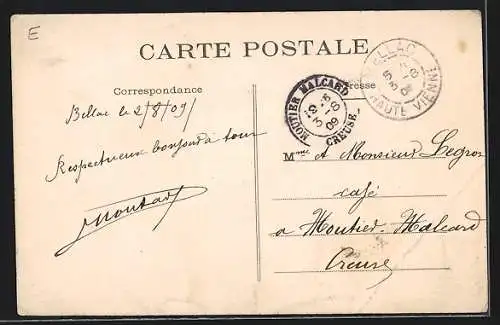 E
CARTE POSTALE
Correspondance
Adresse
BELLAC
HAUTE VIENNE
MOUTIER MALCARD
CREUSE
Bellac le 2/8/09
Respectueux bonjour à tous
Mme et Monsieur Legros
café
a Moutier-Malcard
Creuse